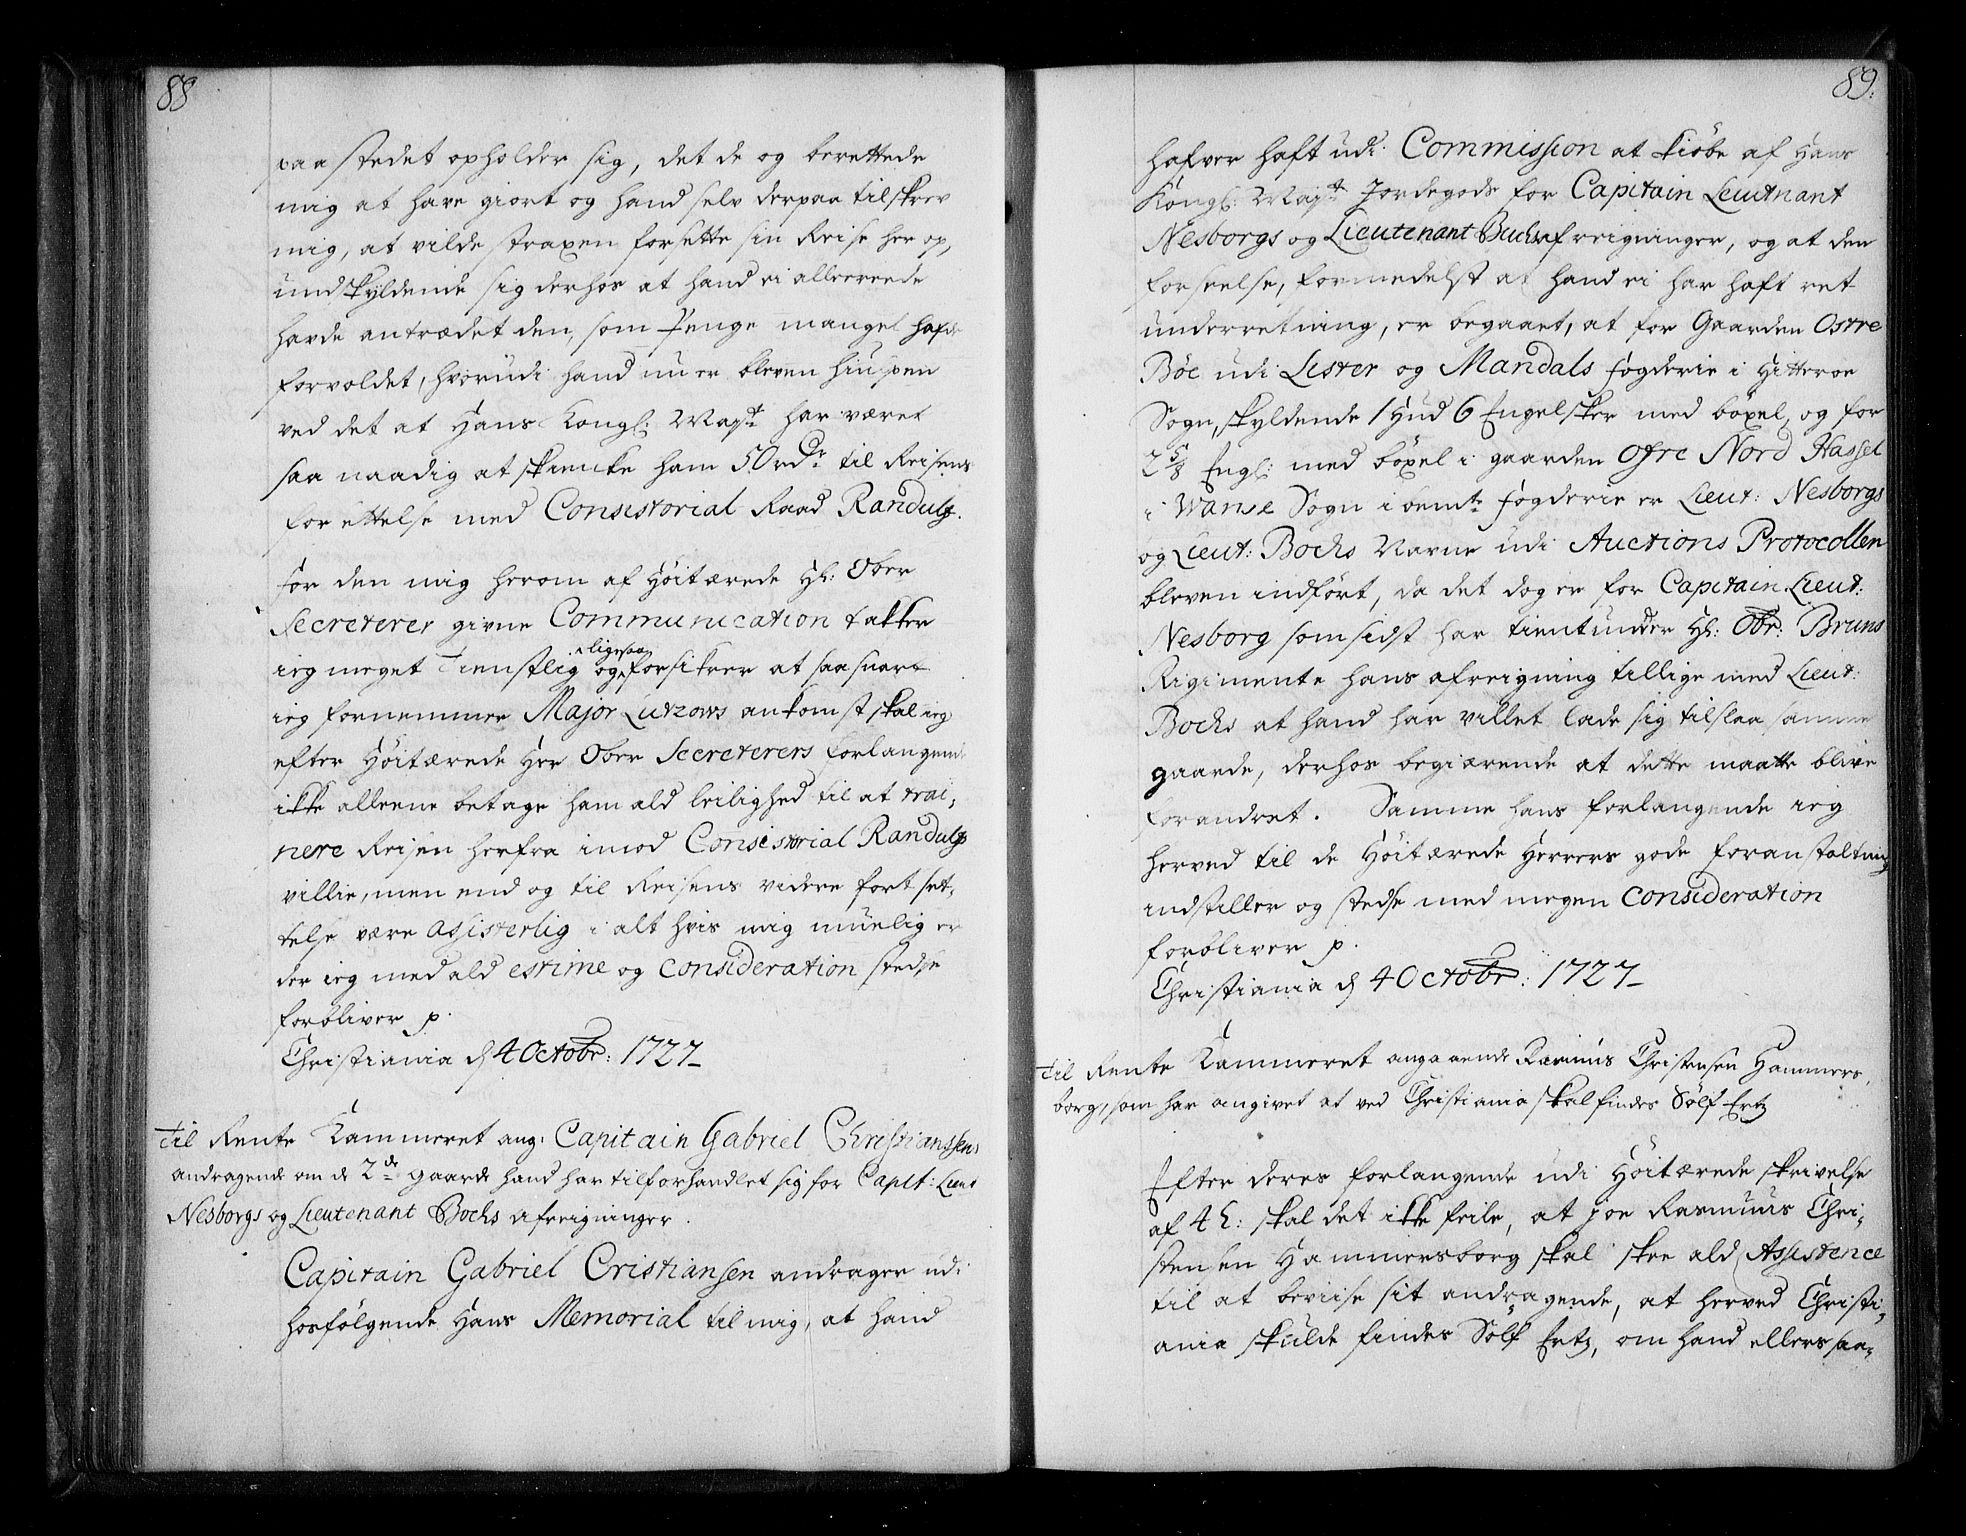 88
paa stedet opholder sig, det de og berettede
mig at have giort og hand selv derpaa tilskrev
mig, at vilde straxen forsette sin Reise her op,
undskyldende sig derhos at hand ei allereede
havde antrædet den, som Penge mangel hafde
forvoldet, hvorudi hand nu er bleven hiulpen
ved det at Hans Kongl: Mayst har været
saa naadig at skiencke ham 50 rdr til Reisens
forsettelse med Consistorial Raad Randulf.
For den mig herom af Höitærede Hl: Ober
Secreterer givne Communication takker
ieg meget tienstlig og ligesaa forsikrer at saa snart
ieg fornemmer Major Lutzows ankomst skal ieg
efter Höitærede Her Ober Secreterers forlangend
ikke alleene betage ham ald leilighed til at trai,
nere Reisen herfra imod Consistorial Randulfs
villie, men end og til Reisens videre fort set,
telse være assisterlig i alt hvis mig muelig er
der ieg med ald estime og consideration stedse
forbliver p.
Christiania d 4 Octobr: 1727_
Til Rente Kammeret ang: Capitain Gabriel Christianssens
andragende om de 2de gaarde hand har tilforhandlet sig for Capit: Lieut
Nesborgs og Lieutenant Bochs afreigninger.
Capitain Gabriel Cristiansen andrager udi
hosfölgende Hans Memorial til mig, at hand
89.
hafver haft udi Commission at kiöbe af Hans
Kongl: Mayst Jordegods for Capitain Lieutnant
Nesborgs og Lieutenant Buchs afreigninger, og at den
forseelse, formedelst at hand ei har haft ret
underretning, er begaaet, at for Gaarden Ostre
Böe udi Lister og Mandals fogderie i Hitteroe
Sogn, skyldende 1 Hud 6 Engelsker med böxel, og for
2 5/8 Engl: med böxel i gaarden Ofre Nord Hassel
i Wanse Sogn i bemte fogderie er Lieut: Nesborgs
og Lieut: Bochs Navne udi Auctions Protocollen
bleven indfört, da det dog er for Capitain Lieut:
Nesborg som sidst har tient under Hl: Obr: Bruns
Rigimente hans afreigning tillige med Lieut:
Bochs at hand har villet lade sig tilslaa samme
gaarde, derhos begiærende at dette maatte blive
forandret. Samme hans forlangende ieg
herved til de Höitærede Herrers gode foranstaltning
indstiller og stedse med megen consideration
forbliver p.
Christiania d 4 Octobr: 1727_
Til Rente Kammeret angaaende Rasmus Christensen Hammers,
borg, som har angivet at ved Christiania skal findes Sölf Ertz
Efter deres forlangende udi Höitærede skrivelse
af 4 h: skal det ikke feile, at joe Rasmus Chri,
stensen Hammersborg skal skee ald Assistence
til at beviise sit andragende, at herved Christi,
ania skulde findes Sölf Ertz, om hand ellers saa,